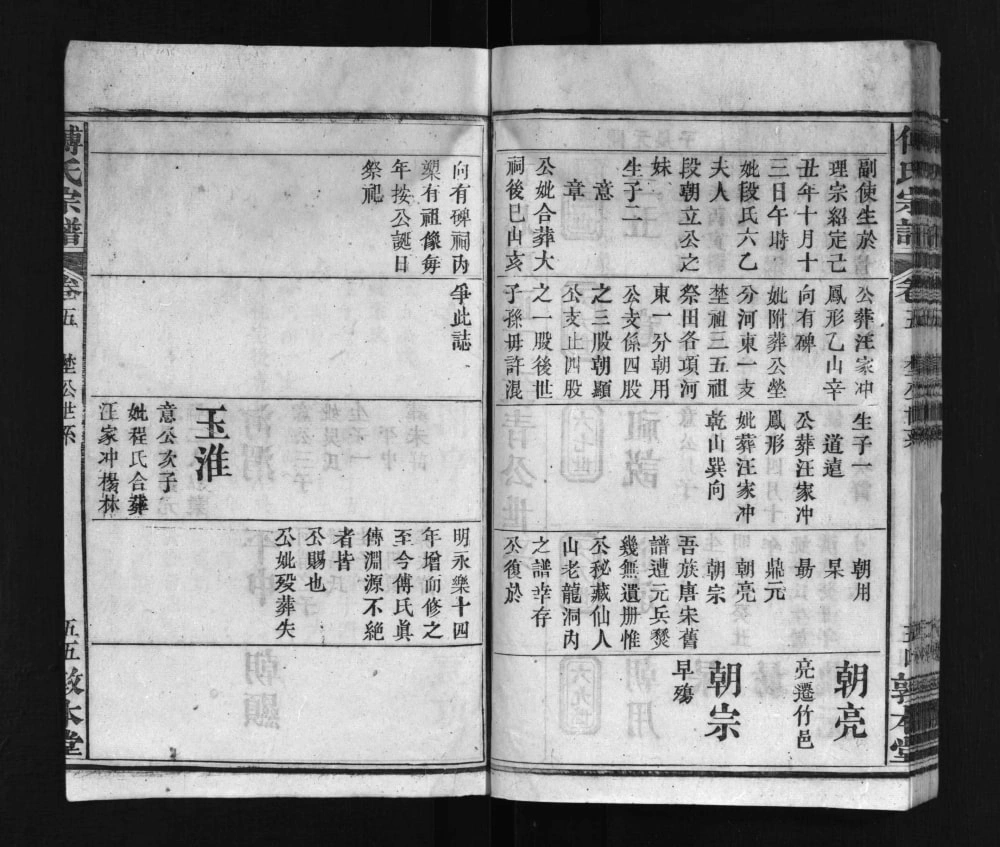 副使生於
理宗紹定己
丑年十月十
三日午時
妣段氏六乙
夫人
段朝立公之
妹
生子二
意
章
公妣合葬大
祠後巳山亥
公葬汪家冲
鳳形乙山辛
向有碑
妣附葬公塋
分河東一支
塟祖三五祖
祭田各項河
東一分朝用
公支係四股
之三股朝顯
公支止四股
之一股後世
子孫毋許混
生子一
道遠
公葬汪家冲
鳳形
妣葬汪家冲
乾山巽向
朝用
杲
勗
鼎元
朝亮
朝宗
吾族唐宋舊
譜遭元兵燹
幾無遺册惟
公秘藏仙人
山老龍洞內
之譜幸存
公復於
朝亮
亮遷竹邑
朝宗
早殤
向有碑祠內
塑有祖像每
年按公誕日
祭祀
爭此誌
玉淮
意公次子
妣程氏合葬
汪家冲楊林
明永樂十四
年增而修之
至今傳氏眞
傳淵源不絶
者皆
公賜也
公妣歿葬失
傅氏宗譜
卷五
塋公世系
五五
敦本堂